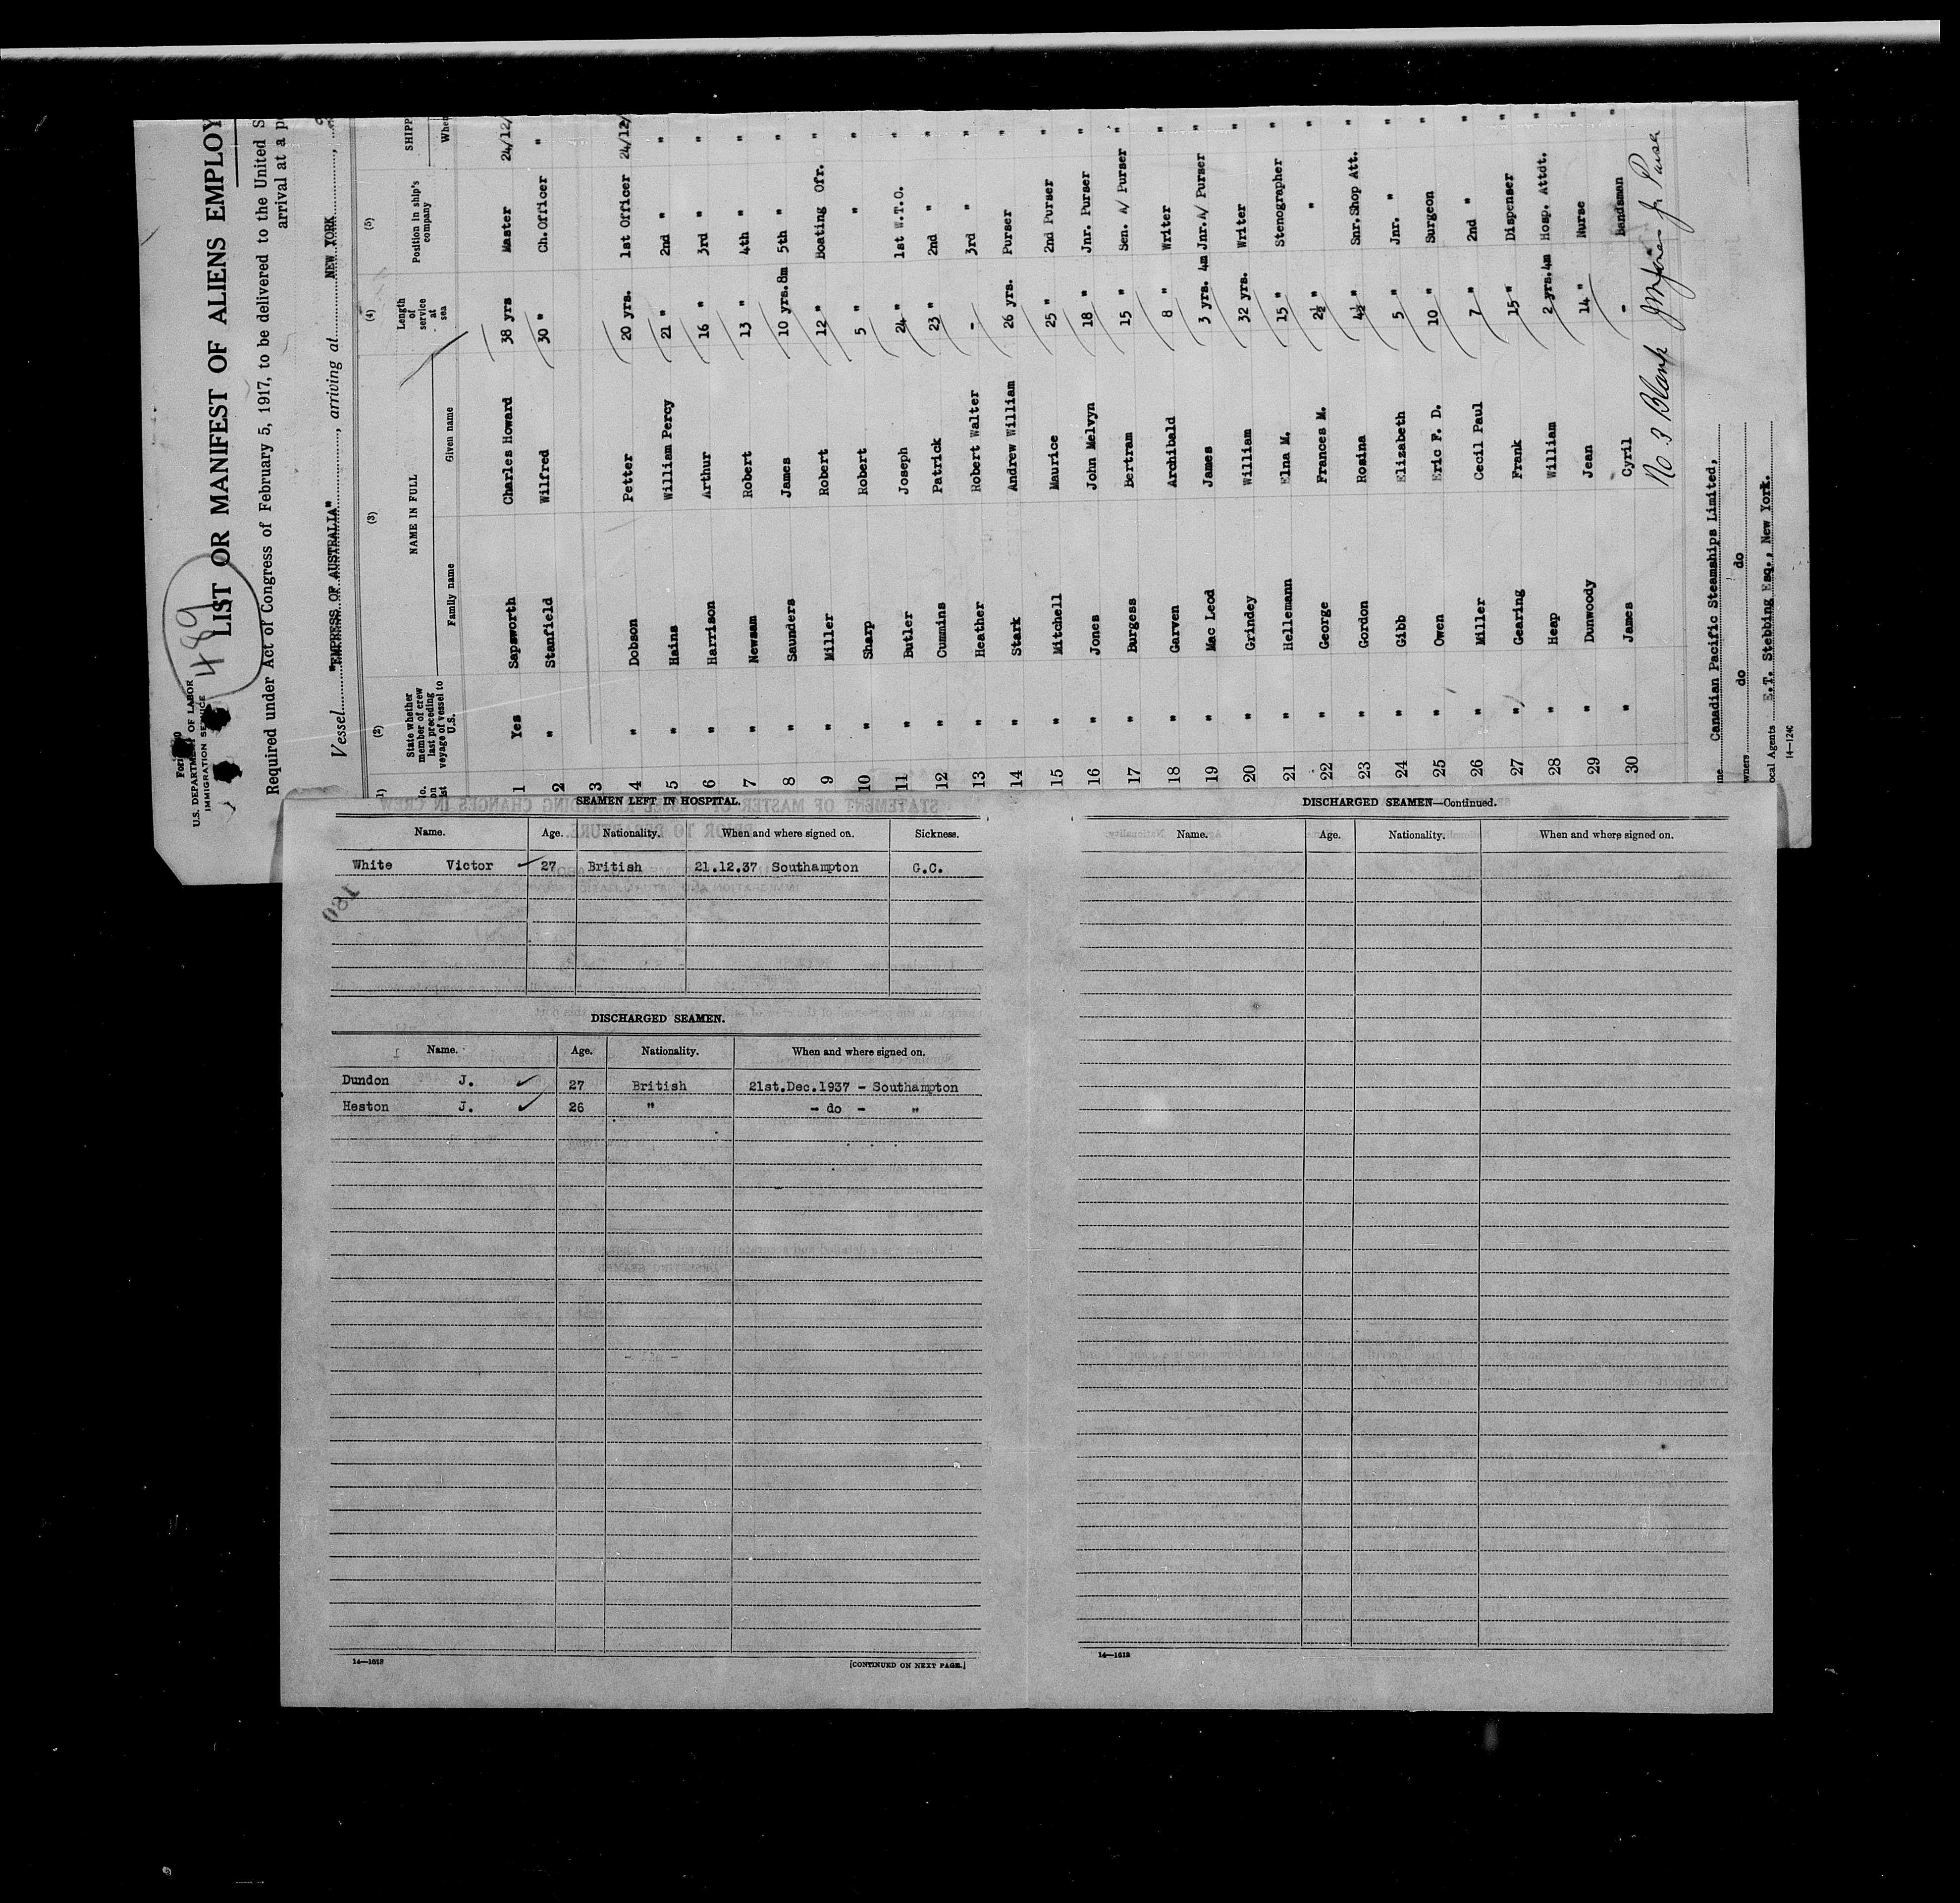 Form 680
U.S. DEPARTMENT OF LABOR
IMMIGRATION SERVICE
489
LIST OR MANIFEST OF ALIENS EMPLOY
Required under Act of Congress of February 5, 1917, to be delivered to the United S
arrival at a p
Vessel "EMPRESS OF AUSTRALIA", arriving at NEW YORK,
(2) (3) (4) (5)
State whether member of crew last preceding voyage of vessel to U.S. NAME IN FULL Family name Given name Length of service at sea Position in ship's company SHIPP Whe
1 Yes Sapsworth Charles Howard 38 yrs Master 24/12/
2 " Stanfield Wilfred 30 " Ch.Officer "
3
4 " Dobson Petter 20 yrs. 1st Officer 24/12/
5 " Hains William Percy 21 " 2nd " "
6 " Harrison Arthur 16 " 3rd " "
7 " Newsam Robert 13 " 4th " "
8 " Saunders James 10 yrs.8m 5th " "
9 " Miller Robert 12 " Boating Ofr. "
10 " Sharp Robert 5 " " "
11 " Butler Joseph 24 " 1st W.T.O. "
12 " Cummins Patrick 23 " 2nd " "
13 " Heather Robert Walter - 3rd " "
14 " Stark Andrew William 26 yrs. Purser "
15 " Mitchell Maurice 25 " 2nd Purser "
16 " Jones John Melvyn 18 " Jnr. Purser "
17 " Burgess Bertram 15 " Sen. A/ Purser "
18 " Garven Archibald 8 " Writer "
19 " Mac Leod James 3 yrs. 4m Jnr.A/ Purser "
20 " Grindey William 32 yrs. Writer "
21 " Hellemann Elna M. 15 " Stenographer "
22 " George Frances M. 2½ " " "
23 " Gordon Rosina 4½ " Snr.Shop Att. "
24 " Gibb Elizabeth 5 " Jnr. " "
25 " Owen Eric F. D. 10 " Surgeon "
26 " Miller Cecil Paul 7 " 2nd " "
27 " Gearing Frank 15 " Dispenser "
28 " Heap William 2 yrs.4m Hosp. Attdt. "
29 " Dunwoody Jean 14 " Nurse "
30 " James Cyril - Bandsman "
No 3 Blank
Canadian Pacific Steamships Limited,
wners do do
ocal Agents E.T. Stebbing Esq., New York.
14—124C
SEAMEN LEFT IN HOSPITAL.
Name. Age. Nationality. When and where signed on. Sickness.
White Victor 27 British 21.12.37 Southampton G.C.
DISCHARGED SEAMEN.
Name. Age. Nationality. When and where signed on.
Dundon J. 27 British 21st.Dec.1937 - Southampton
Heston J. 26 " - do - "
14—1618
[CONTINUED ON NEXT PAGE.]
DISCHARGED SEAMEN—Continued.
Name. Age. Nationality. When and where signed on.
14—1618